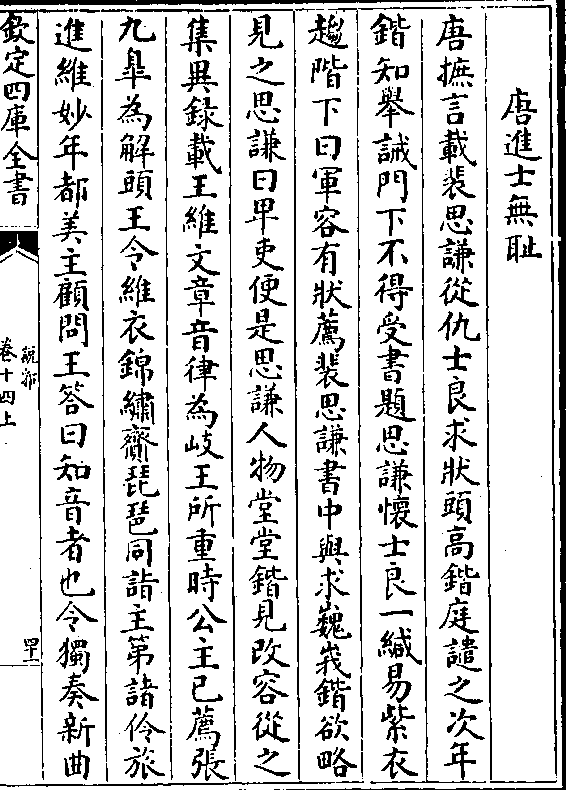 唐進士無耻
唐摭言載裴思謙從仇士良求狀頭高鍇庭譴之次年
鍇知舉誡門下不得受書題思謙懷士良一緘易紫衣
趨階下曰軍容有狀薦裴思謙書中與求巍峩鍇欲略
見之思謙曰卑吏便是思謙人物堂堂鍇見改容從之
集異錄載王維文章音律為岐王所重時公主已薦張
九臯為解頭王令維衣錦繡齎琵琶同詣主第諸伶旅
進維妙年都美主顧問王答曰知音者也令獨奏新曲
欽定四庫全書
說郛
卷十四上
四十一